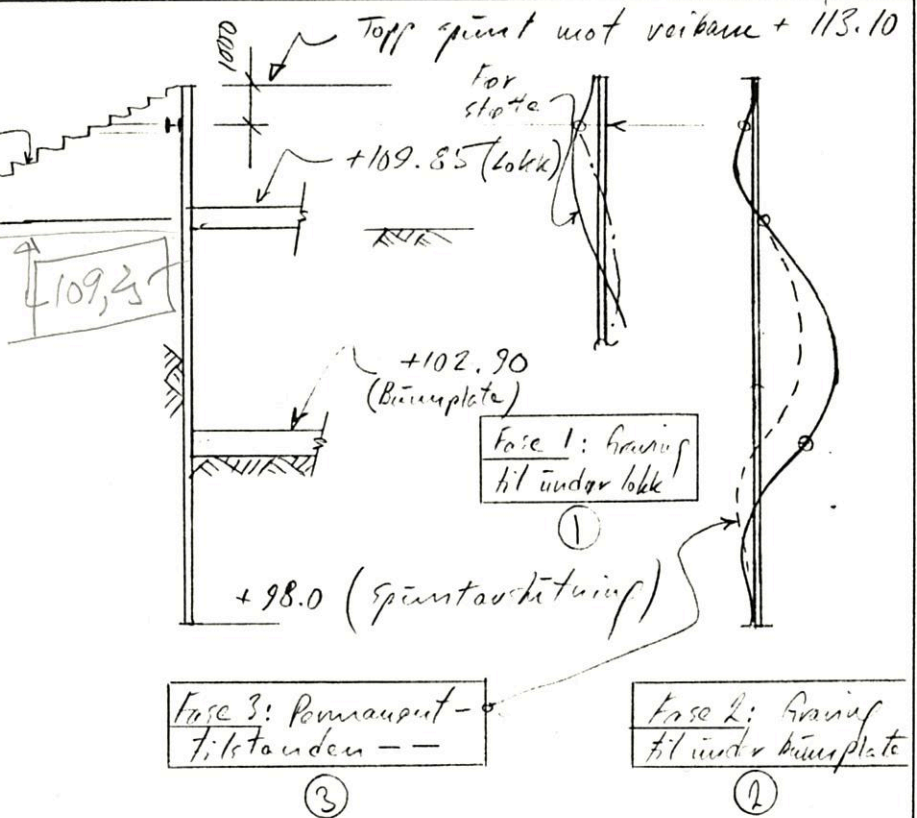 Topp spunt mot veibane + 113.10
1000
Før
støtte
+109.85 (Lokk)
+109,25
+102.90
(Bunnplate)
Fase 1: Graving
til under lokk
1
+ 98.0 (Spuntavslutning)
Fase 3: Permanent-
tilstanden - -
3
Fase 2: Graving
til under bunnplate
2